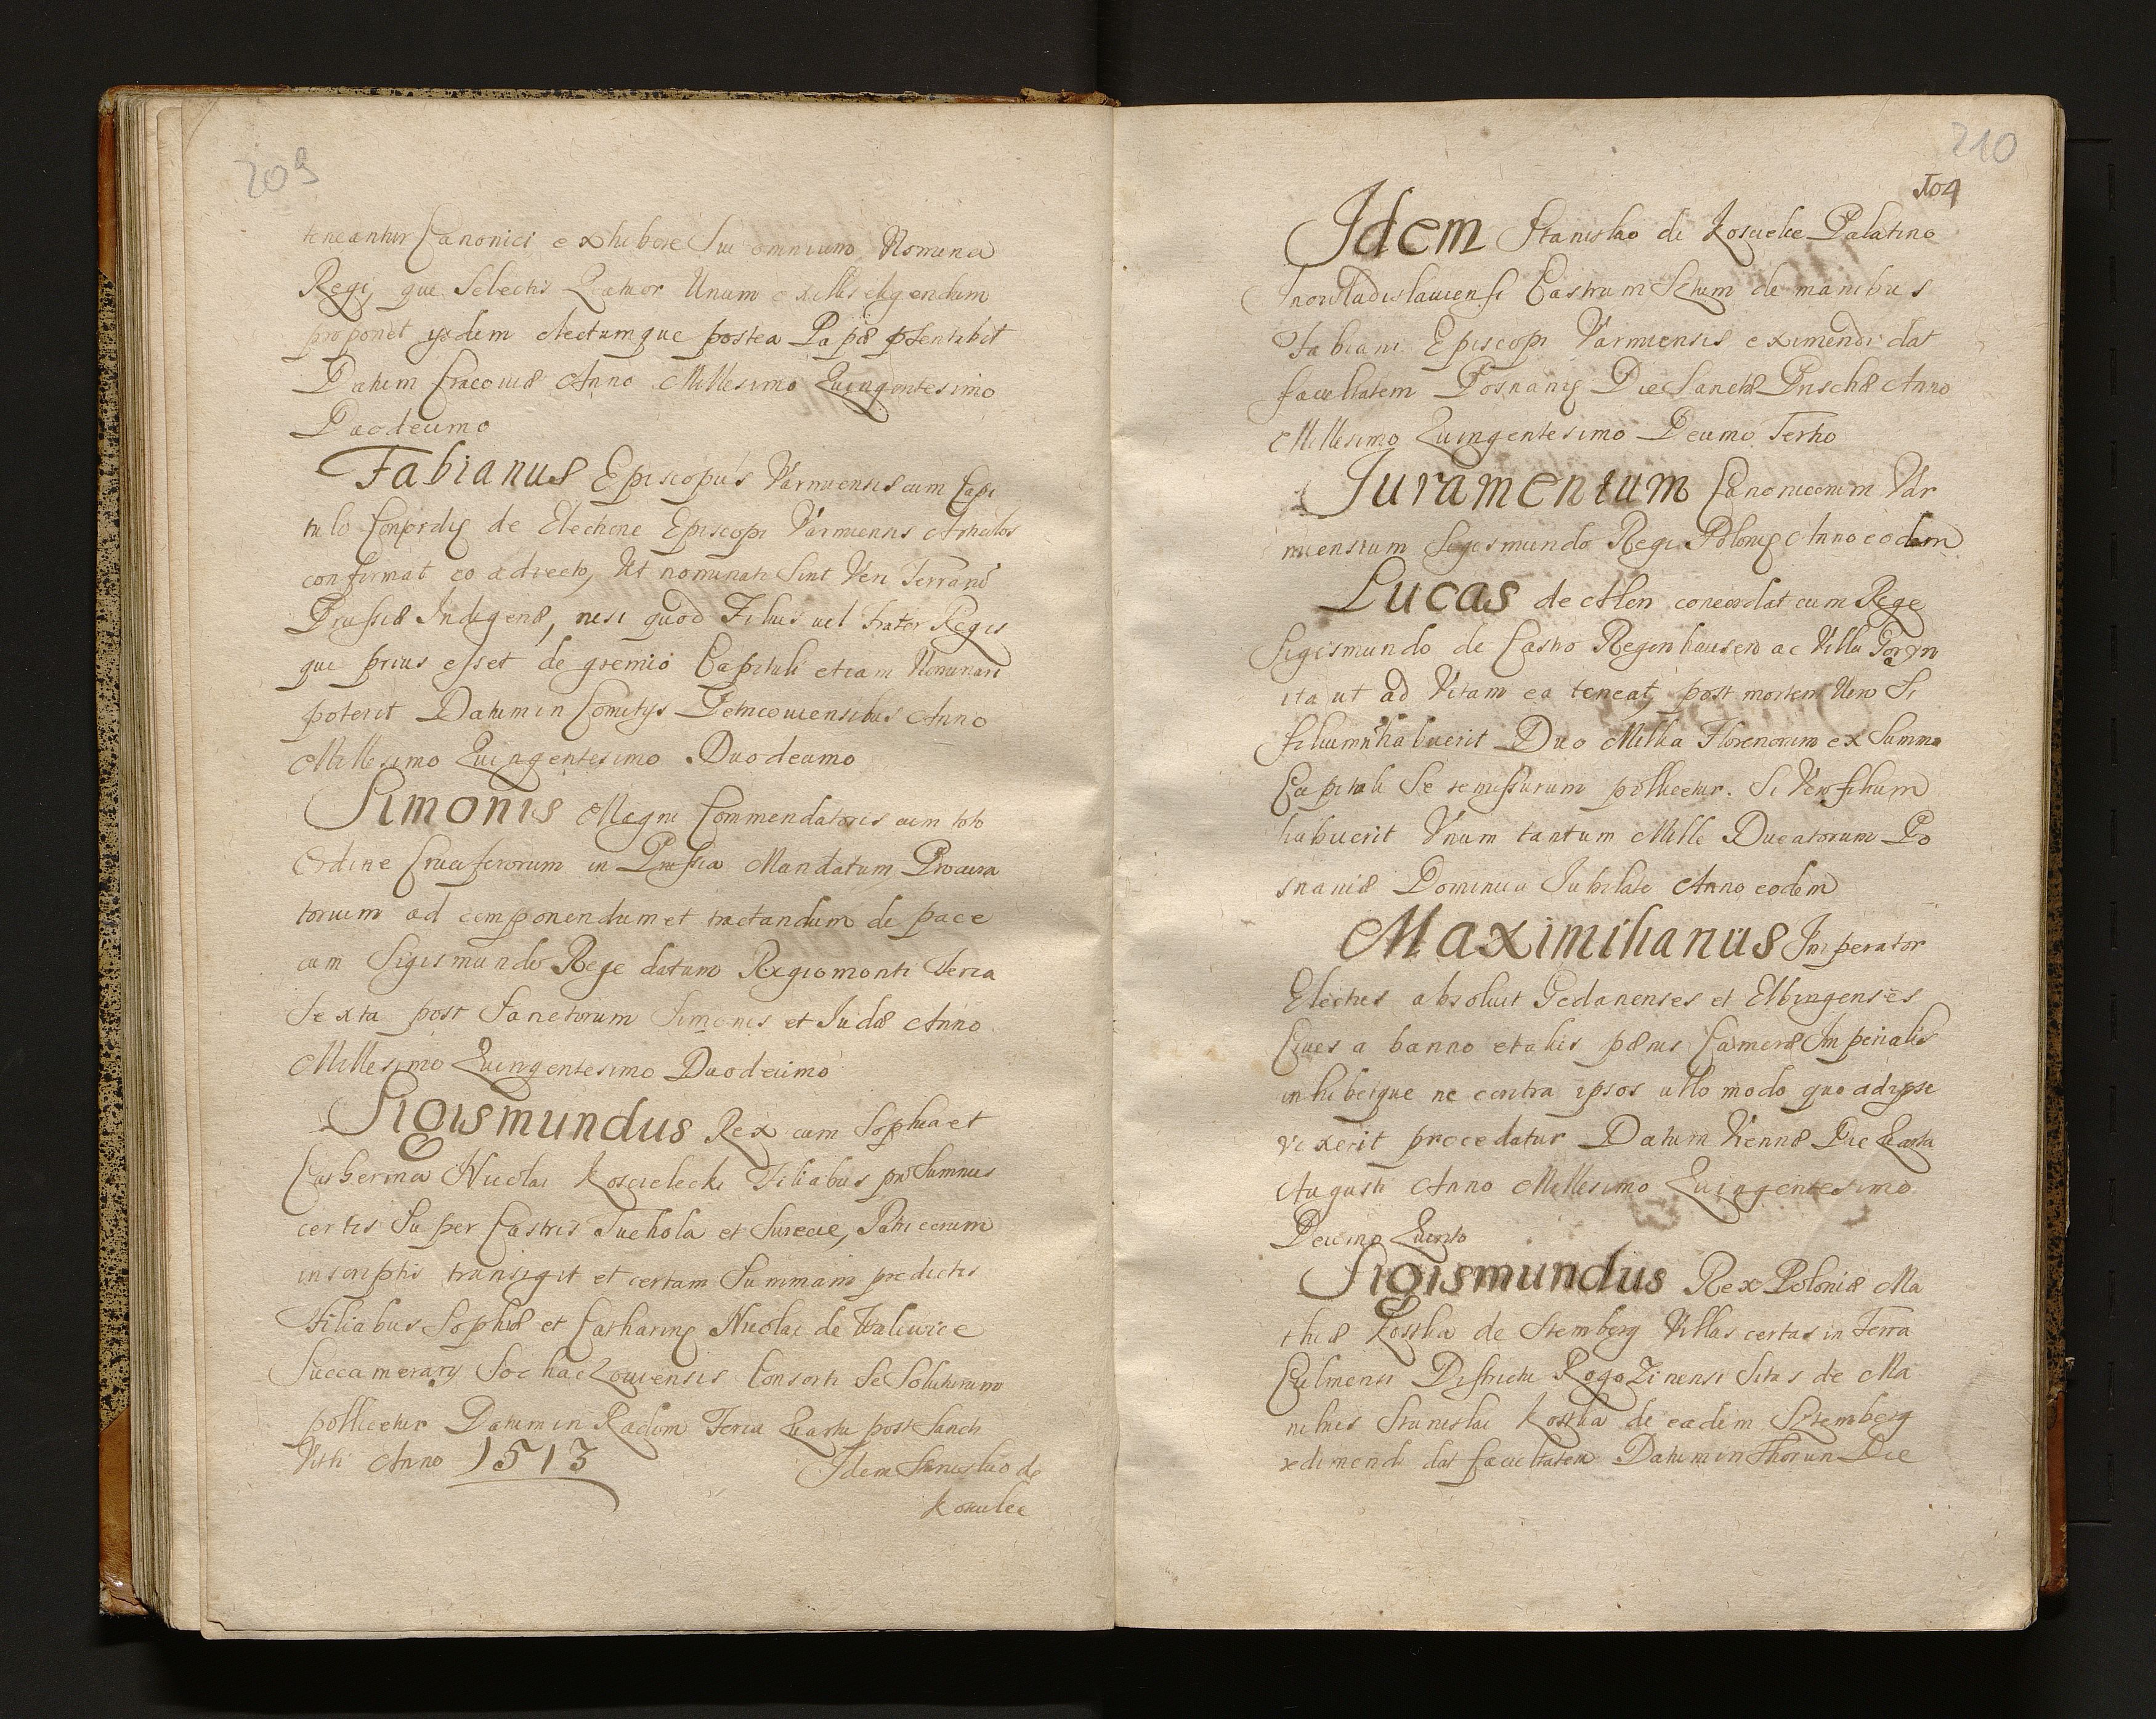 209
teneantur Canonici exhibere Sui omnium Nomina
Regi, qui Selectis Quatuor Unum ex illis eligendum
proponet ysdem electumque postea Papæ pſentabit
Datum Cracoviæ Anno Millesimo Quingentesimo
Duodecimo
Fabianus Episcopus Varmiensis cum Capi
tulo Concordię de Electione Episcopi Varmiensis Articulos
confirmat eo adiecto, Ut nominati Sint Veri Terrarū
Prussiæ Indigenæ, nisi quod Filius vel frater Regis
qui prius esset de gremio Capituli etiam Nominari
poterit Datum in Comitys Petricoviensibus Anno
Millesimo Quingentesimo Duodecimo
Simonis Magni Commendatoris cum toto
Ordine Cruciferorum in Prussia Mandatum Procura
torium ad componendum et tractandum de pace
cum Sigismundo Rege datum Regiomonti Feria
Sexta post Sanctorum Simonis et Iudæ Anno
Millesimo Quingentesimo Duodecimo
Sigismundus Rex cum Sophia et
Catherina Nicolai Koscielecki Filiabus pro Summis
certis Super Castris Tuchola et Suiecie, Patri earum
inscriptis transigit et certam Summam predictis
Filiabus Sophiæ et Catharinę Nicolai de
Succamerary Sochaczoviensis Consorti Se Soluturum
pollicetur Datum in Radom Feria Quarta post Sancti
Viti Anno 1513 Idem Stanislao de
Koscielee
210
104
Idem Stanislao de Koscielee Palatino
Inowladislaviensi Castrum Schum de manibus
Fabiani Episcopi Varmiensis eximendi dat
facultatem Posnanię Die Sanctæ Priscæ Anno
Millesimo Quingentesimo Decimo Tertio
Juramentum Canonicorum Var
miensium Sigismundo Regi Polonię Anno eodem
Lucas de Alen concordat cum Rege
Sigismundo de Castro Regenhausen ac Villa
ita ut ad Vitam ea teneat, post mortem Vero Si
filium n habuerit Duo Millia Florenorum ex Summa
Capitali Se remissurum pollicetur. Si Vero filium
habuerit Unum tantum Mille Ducatorum Po
snaniæ Dominica Jubilate Anno eodem
Maximilianus Imperator
Electus absoluit Gedanenses et Elbingenses
Cives a banno et aliis pænis Cameræ Imperialis
inhibetque ne contra ipsos ullo modo quoad ipse
vixerit procedatur Datum Viennæ Die Quarta
Augusti Anno Millesimo Quingentesimo
Decimo Quinto
Sigismundus Rex Poloniæ Ma
thiæ Kostka de Stemberg Villas certas in Terra
Culmensi Districtu Rogozinensi Sitas de Ma
nibus Stanislai Kostka de eadem Sztemberg
redimendi dat facultatem Datum in Thorun Die